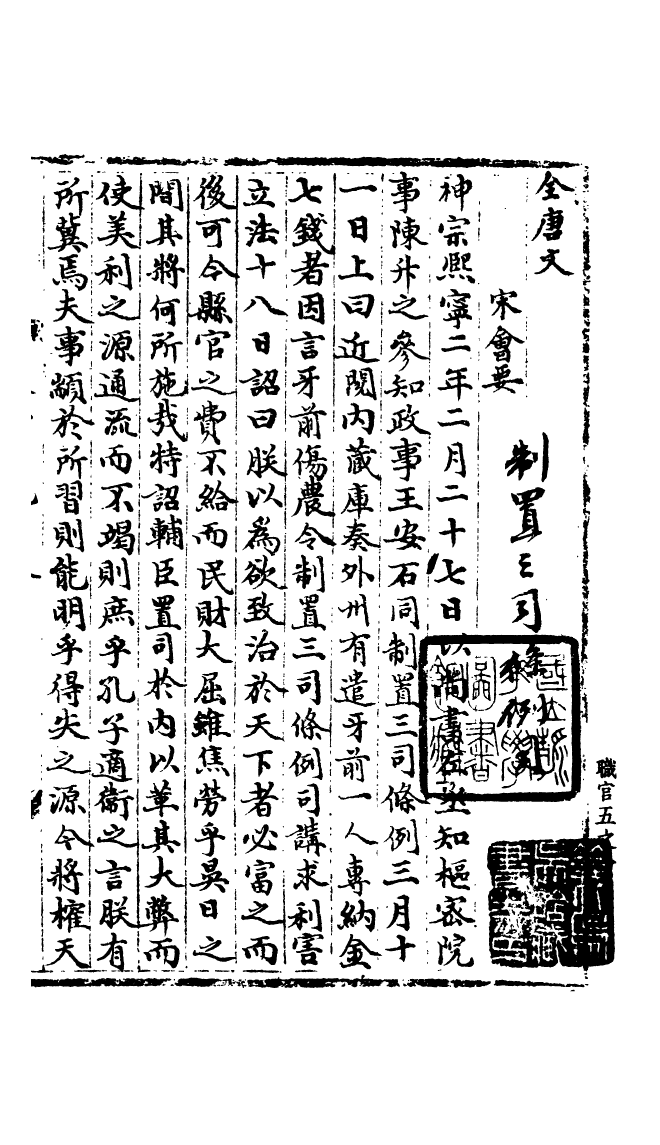 全唐文
宋會要
制置三司條例司
神宗熙寧二年二月二十七日以尚書左丞知樞密院
事陳升之參知政事王安石同制置三司條例三月十
一日上曰近閱內藏庫奏外州有遣牙前一人專納金
七錢者因言牙前傷農令制置三司條例司講求利害
立法十八日詔曰朕以為欲致治於天下者必富之而
後可今縣官之費不給而民財大屈雖焦勞乎昃日之
間其將何所施哉特詔輔臣置司於內以革其大弊而
使美利之源通流而不竭則庶乎孔子適衞之言朕有
所冀焉夫事顓於所習則能明乎得失之源今將榷天
職官五之